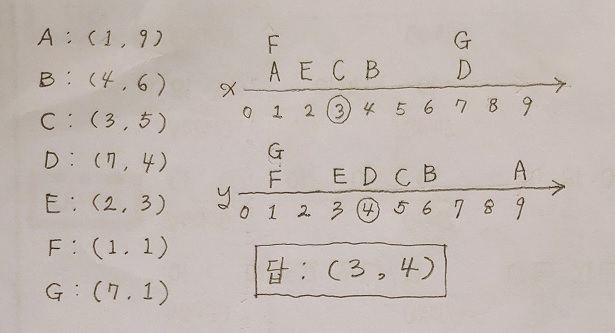 A : (1, 9)
B : (4, 6)
C : (3, 5)
D : (7, 4)
E : (2, 3)
F : (1, 1)
G : (7, 1)
F G
A E C B D
x
0 1 2 3 4 5 6 7 8 9
G
F E D C B A
y
0 1 2 3 4 5 6 7 8 9
답 : (3, 4)